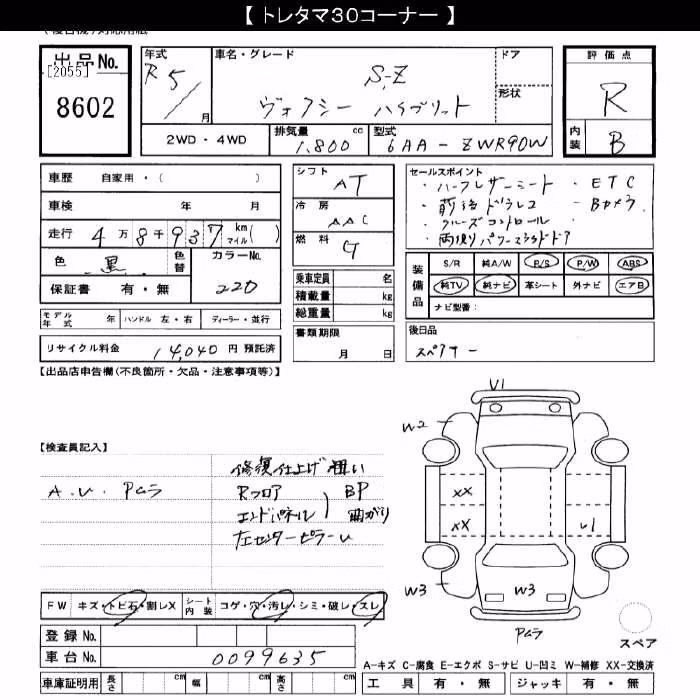 【 トレタマ30コーナー 】
出品No.
[2055]
8602
年式
R5
月
車名・グレード
S-Z
ヴォクシー ハイブリット
ドア
形状
2WD・4WD
排気量 cc
1,800
型式
6AA-ZWR90W
評価点
R
内装
B
車歴 自家用・( )
車検 年 月
走行 4万8千937 km マイル( )
色 黒
色替
カラーNo.
220
保証書 有・無
シフト
AT
冷房
AAC
燃料
G
乗車定員 名
積載量 kg
総重量 kg
書類期限
月 日
セールスポイント
・ハーフレザーシート ・ETC
・前後ドラレコ ・Bカメラ
・クルーズコントロール
・両側パワースライドドア
装備品
S/R 純A/W P/S P/W ABS
純TV 純ナビ 革シート 外ナビ エアB
ナビ型番:
後日品
スペアキー
モデル年式 年 ハンドル 左・右 ディーラー・並行
リサイクル料金 14,040 円 預託済
【出品店申告欄(不良箇所・欠品・注意事項等)】
【検査員記入】
A.U. Pムラ
修復仕上げ粗い
Rフロア BP
エンドパネル 曲がり
左センターピラーU
U1
W2
XX
XX
U1
W3
W3
Pムラ
スペア
FW キズ・トビ石・割レX
シート内装 コゲ・穴・汚レ・シミ・破レ・スレ
登録No.
車台No. 0099635
車庫証明用 長さ cm 幅 cm 高さ cm
A-キズ C-腐食 E-エクボ S-サビ U-凹ミ W-補修 XX-交換済
工具 有・無 ジャッキ 有・無